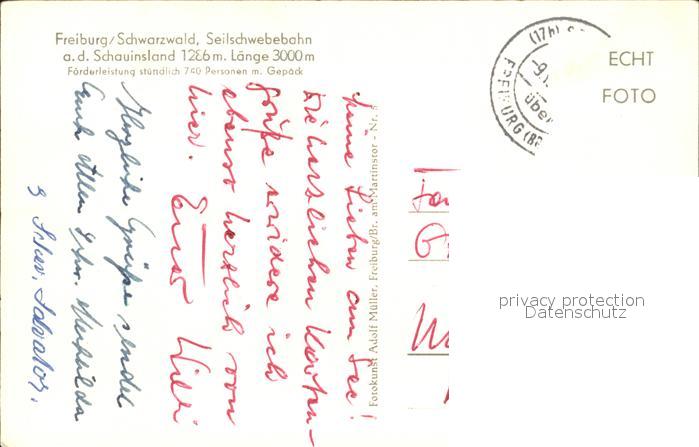 Freiburg/Schwarzwald, Seilschwebebahn
a. d. Schauinsland 1286 m. Länge 3000 m
Förderleistung stündlich 740 Personen m. Gepäck
(17b)
-9.
über
FREIBURG (BR
ECHT
FOTO
Meine Lieben am See!
Die herzlichen Karten-
grüße erwidere ich
ebenso herzlich von
hier. Euer Willi
Herzliche Grüße sendet
Euch Allen Schw.
Fotokunst Adolf Müller, Freiburg/Br. am Martinstor - Nr.
privacy protection
Datenschutz